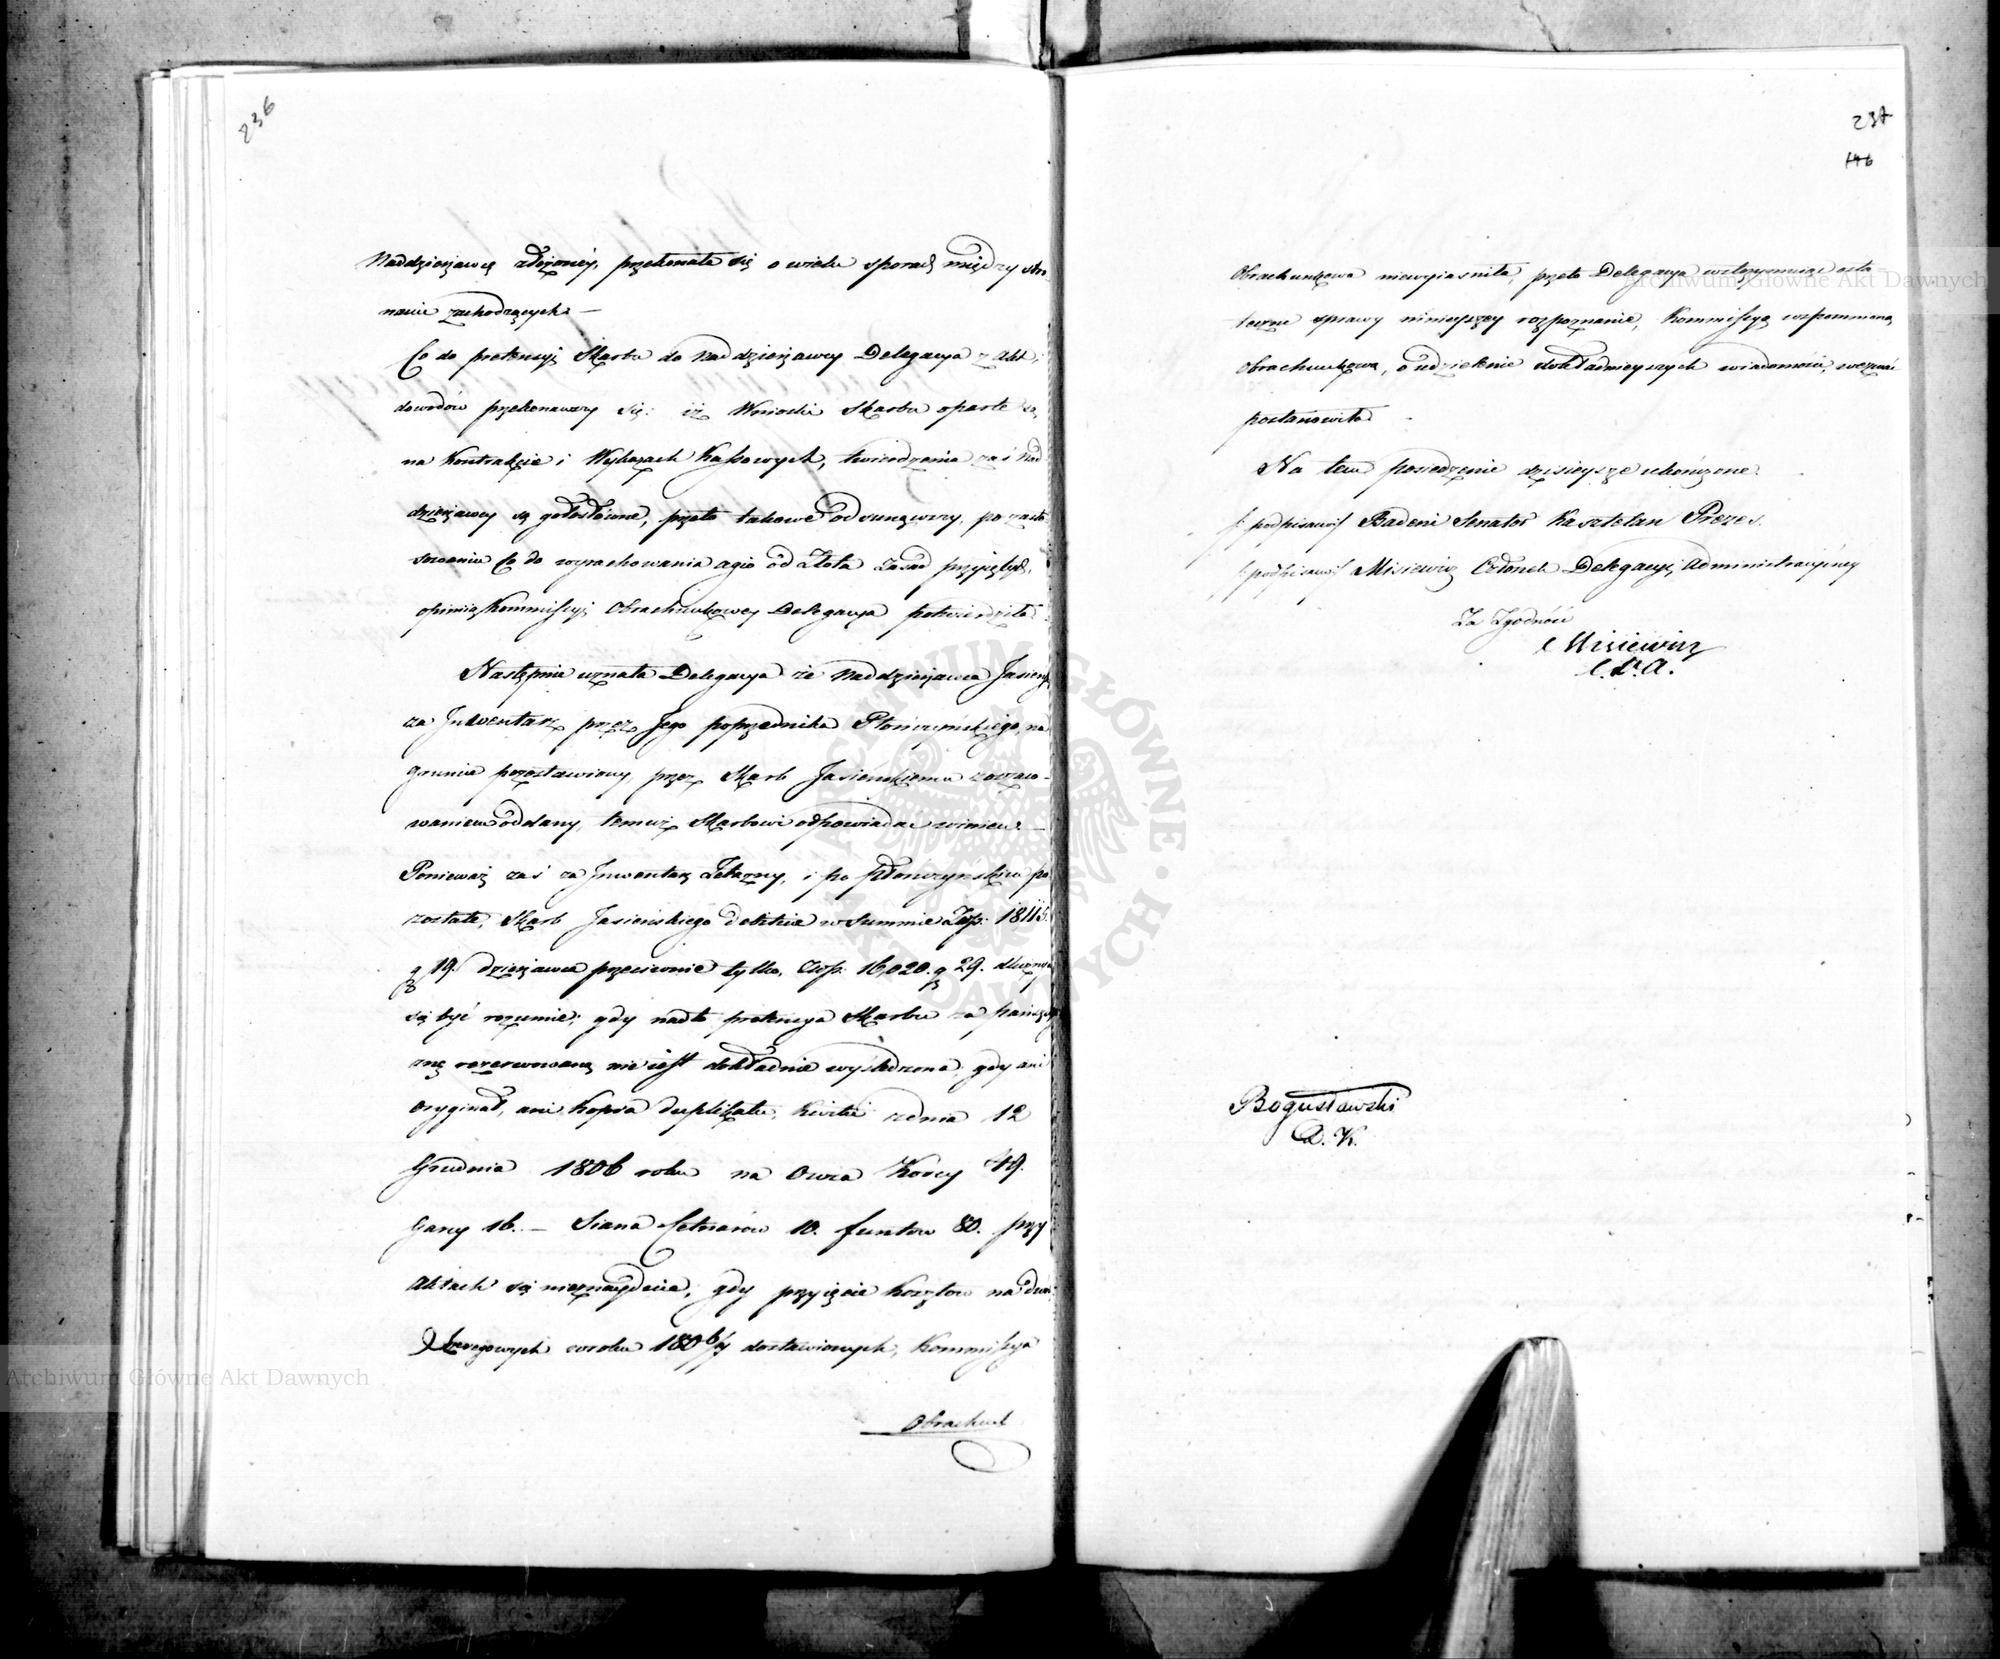 236
Naddzierżawcę złożoney, przekonała się o wielu sporach między stro-
nami zachodzących. —
Co do pretensyi Skarbu do Naddzierżawcy Delegacya z Akt i
dowodów przekonawszy się: iż Wnioski Skarbu oparte są
na Kontrakcie i Wykazach Kassowych, twierdzenia zaś Nad
dzierżawcy są gołosłowne, przeto takowe odsunąwszy, po zasto
sowaniu Co do wyrachowania agio od złota zasad przyjętych,
opinią Kommissyi Obrachunkowey Delegacya potwierdziła.
Następnie uznała Delegacya że Naddzierżawca Jasieński
za Inwentarz przez Jego poprzednika Płończyńskiego, na
gruncie pozostawiony, przez Skarb Jasieńskiemu zaczaso-
waniem oddany, temuż Skarbowi odpowiadać winien. —
Ponieważ zaś za Inwentarz Żelazny, i po Płończyńskim po
zostałe, Skarb Jasieńskiego debitnie w Summie Złp: 18115.
g 19. dzierżawca przeciwnie tylko, Złp. 16,020. g 29. dłużnym
się być rozumie; gdy nadto pretensya Skarbu za pańszczy
znę rezerwowaną nie iest dokładnie wyśledzona, gdy ani
Oryginał, ani Kopia duplikatu, Kwitu z dnia 12
Grudnia 1806 roku na Owsa Korcy 49.
Garcy 16. — Siana Cetnarów 10. funtow 80. przy
Aktach się nieznayduie, gdy przyięcie Kosztow na dwu
Szeregowych w roku 1806/7 dostawionych, Kommissya
Obrachun
237
146
Obrachunkowa niewyiasniła, przeto Delegacya wstrzymuiąc osta
teczne sprawy ninieyszey rozpoznanie, Kommissyą wspomnioną
Obrachunkową, o udzielenie dokładnieyszych wiadomości, wezwać
postanowiła. —
Na tem posiedzenie dzisieysze ukończone.
/: podpisano :/ Badeni Senator Kasztelan Prezes.
/: podpisano :/ Misiewicz Członek Delegacyi Administracyiney
Za Zgodność
Misiewicz
C. D. A.
Bogusławski
A. K.
Archiwum Główne Akt Dawnych
Archiwum Główne Akt Dawnych
ARCHIWUM GŁÓWNE AKT DAWNYCH